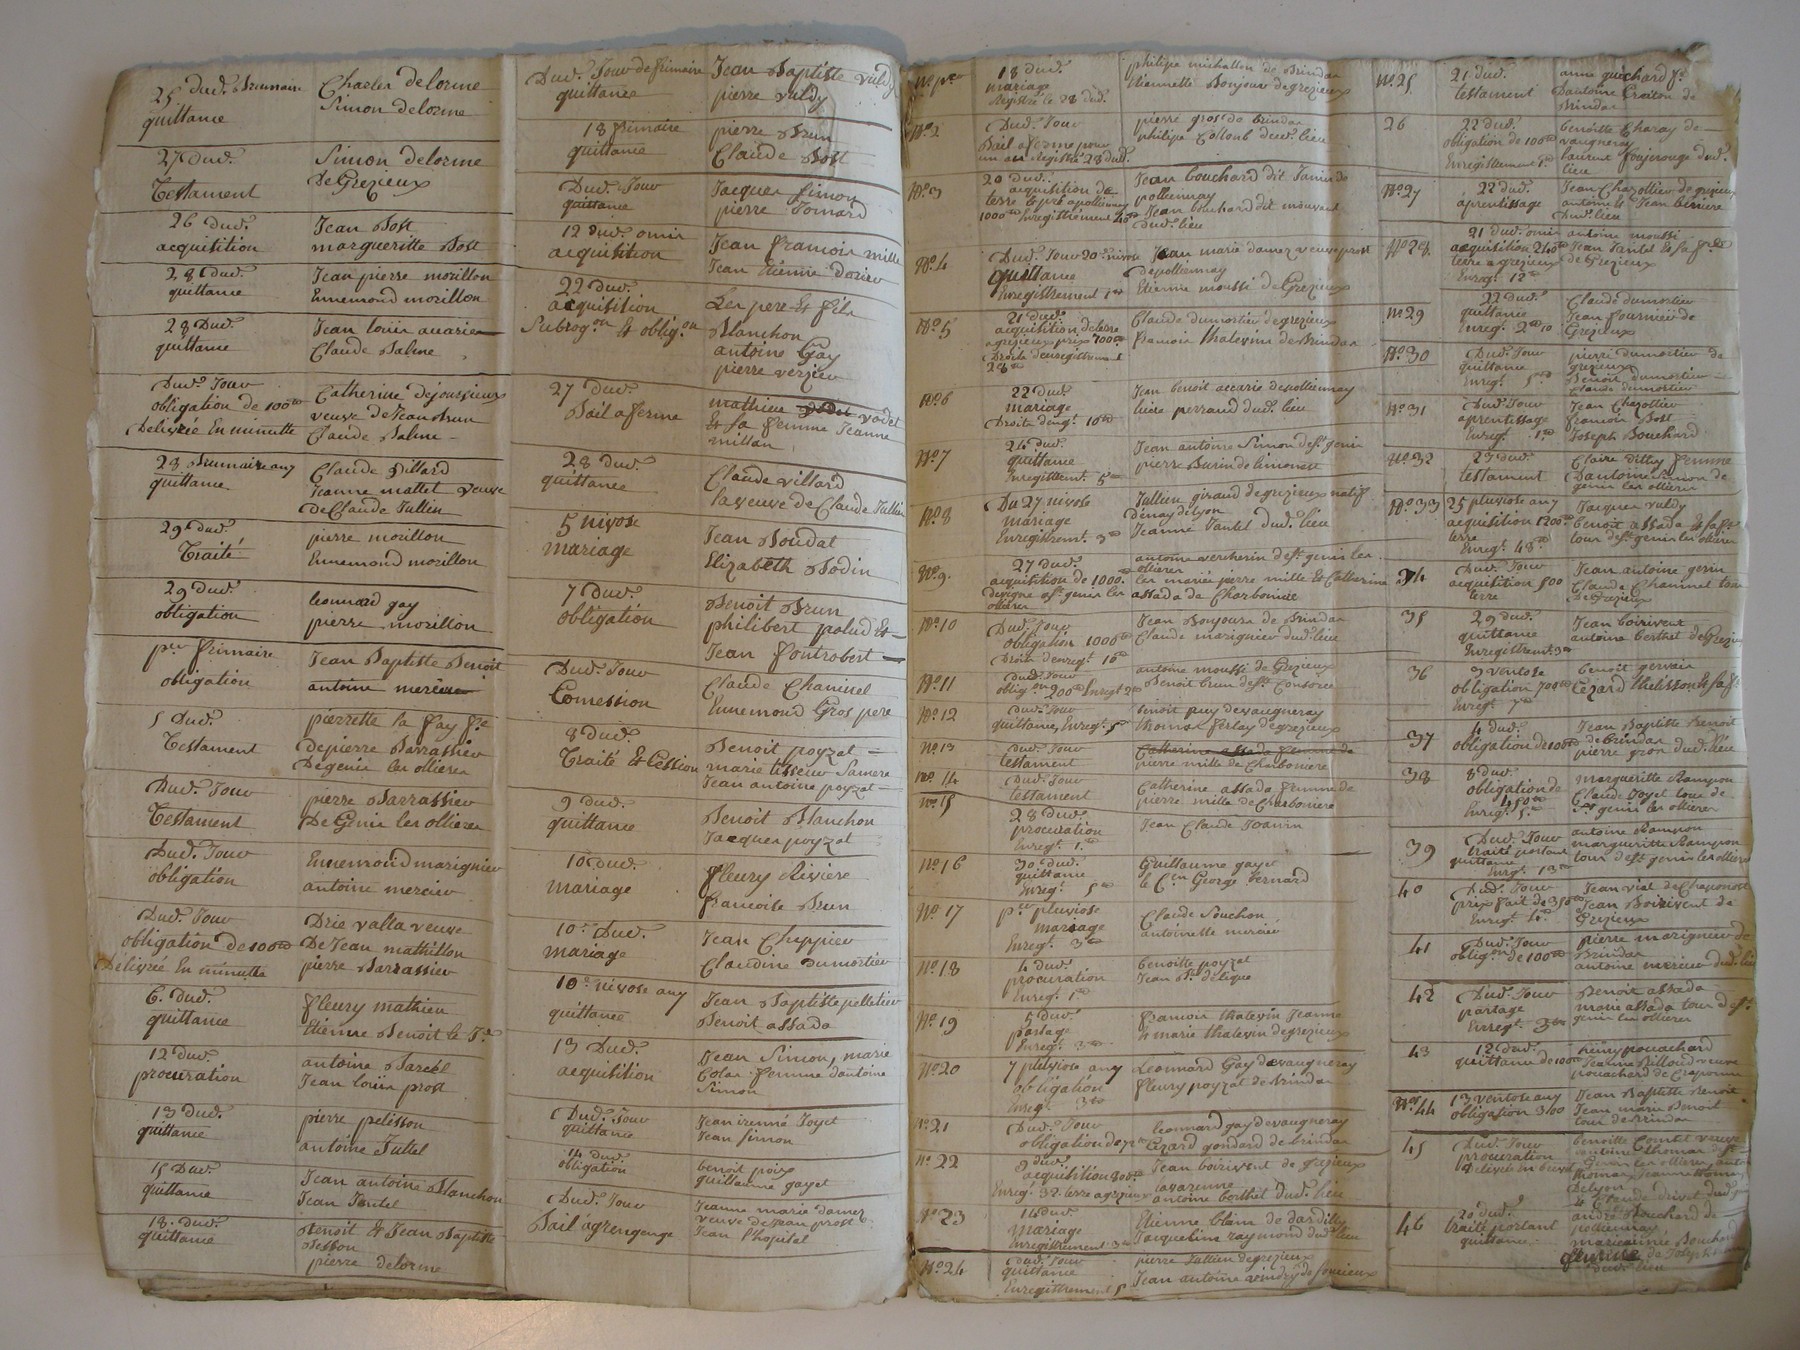 25 dud. Brumaire Charles delorme
quittance Simon delorme
27 dud. Simon delorme
Testament De Grezieux
26 dud. Jean Bost
acquisition margueritte Bost
28 dud. Jean pierre morillon
quittance Ennemond morillon
28 Dud. Jean louis
quittance Claude Balme
Dud. Jour Catherine dejoussieux
obligation de 100 veuve de Jean Brun
Delivrée En minutte Claude Balme
28 Brumaire an 7 Claude Dillard
quittance Jeanne mattet veuve
de Claude Jullin
29 Dud. pierre morillon
Traité Ennemond morillon
29 dud. leonnard gay
obligation pierre morillon
per frimaire Jean Baptiste Benoit
obligation antoine mercier
5 Dud. pierrette la fay fe
Testament de pierre Barrassieu
De genis les ollieres
Dud. Jour pierre Barrassieu
Testament De Genis les ollieres
Dud. Jour Ennemond marignier
obligation antoine mercier
Dud. Jour valla veuve
obligation de 100 De Jean mathillon
Délivrée En minutte pierre Barrassieu
6. dud. fleury mathieu
quittance Etienne Benoit le
12 dud. antoine
procuration Jean louis prost
13 dud. pierre pelisson
quittance antoine
15 Dud. Jean antoine Blanchon
quittance Jean Jantel
18. dud. Benoit Et Jean Baptiste
quittance Besson
pierre delorme
Dud. Jour de frimaire Jean Baptiste vuldy
quittance pierre vuldy
18 frimaire pierre Brun
quittance Claude Bost
Dud. Jour Jacques Simon
quittance pierre Tomard
12 dud. omis Jean francois mille
acquisition Jean Etienne
22 Dud.
acquisition Les pere Et fils
Subrog.on Et oblig.on Blanchon
antoine Gay
pierre verzieu
27 dud. mathieu vodet
Bail a ferme Et sa femme Jeanne
millon
28 dud. Claude villard
quittance la veuve de Claude Jullin
5 nivose Jean Boudat
mariage Elizabeth Bodin
7 Dud. Benoit Brun
obligation philibert palud Et
Jean fontrobert
Dud. Jour Claude Chaninel
Commission Ennemond Gros pere
8 dud. Benoit poyzat
Traité Et Cession marie tisseur
Jean antoine poyzat
9 dud. Benoit Blanchon
quittance Jacques poyzat
10 dud. fleury Riviere
mariage francoise Brun
10e Dud. Jean Chippier
mariage Claudine dumortier
10e nivose an 7 Jean Baptiste pelletier
quittance Benoit assada
13 Dud. Jean Simon, marie
acquisition Colas femme dantoine
Simon
Dud. Jour Jean irenné Joyet
quittance Jean Simon
14 dud. benoit poix
obligation guillaume gayet
Dud. Jour Jeanne marie damez
Bail a grengeage veuve de Jean prost
Jean lhopital
No per 18 dud. philipe michallon de Brindas
mariage Etiennette Bonjour de grezieux
registré le 28 dud.
No 2 Dud. Jour pierre gros de Brindas
Bail a ferme pour philipe Collomb dud. lieu
un an Registré 28 dud.
No 3 20 dud. Jean bouchard dit
acquisition de pollionnay
terre Et pré a pollionnay Jean bouchard dit
1000 Enregistrement 40 dud. lieu
No 4 Dud. Jour 20 nivose Jean marie damez veuve prost
quittance de pollionnay
Enregistrement 1 Etienne moussi de Grezieux
No 5 21 dud. Claude dumortier de grezieux
acquisition de terre francois thalevin de Brindas
a grezieux prix 700
Droits denregistrement
28
No 6 22 dud. Jean benoit accarie de pollionnay
mariage luce perraud dud. lieu
Droits d'eng.t 10
No 7 24 dud. Jean antoine Simon de st genis
quittance pierre Burin de limonest
Enregistrement 5
No 8 Du 27 nivose Jullien giraud de grezieux natif
mariage
Enregistrem.t 3 Jeanne Jantel dud. lieu
No 9. 27 dud. antoine vercherin de st. genis les
acquisition de 1000. ollieres
devigne a st. genis les les mariés pierre mille Et Catherine
ollieres assada de Charbonniere
No 10 Dud. Jour Jean Bonjour de Brindas
obligation 1000 Claude marignier dud. lieu
Droits denreg.t 10
No 11 dud. Jour antoine moussi de Grezieux
oblig.on 200 Enregt 2 Benoit brun de st. Consorce
No 12 dud. Jour benoit puy de vaugneray
quittance, Enreg.t 5 thomas ferlay de grezieux
No 13 dud. Jour Catherine assada femme de
testament pierre mille de Charboniere
No 14 dud. Jour Catherine assada femme de
testament pierre mille de Charboniere
No 15 28 dud. Jean Claude Joanin
procuration
Enreg.t 1
No 16 30 dud. Guillaume gayet
quittance le C.en George Bernard
Enreg.t 5
No 17 per pluviose Claude Souchon
mariage antoinette mercier
Enreg.t 3
No 18 4 dud. benoitte poyzat
procuration Jean Bte. delique
Enreg.t 1
No 19 5 dud. francois thalevin Jeanne
partage Et marie thalevin de grezieux
Enreg.t 3
No 20 7 pluviose an 7 Leonnard Gay de vaugneray
obligation fleury poyzat de Brindas
Enreg.t 3
No 21 Dud. Jour leonnard gay de vaugneray
obligation de 72 Cezard gondard de brindas
No 22 9 dud. Jean boirivent de grezieux
acquisition 800 lavarenne
Enreg.t 32 terre a grezieux antoine berthet dud. lieu
No 23 14 dud. Etienne blain de dardilly
mariage Jacqueline raymond dud. lieu
Enregistrement 3
No 24 dud. Jour pierre Jullien de grezieux
quittance Jean antoine vindry de
Enregistrement 5
No 25 21 dud. anne guichard fe.
testament Dantoine Craiton de
Brindas
26 22 dud. benoitte Charay de
obligation de 100 vaugneray
Enregistrement 1 laurent foujerouge dud.
lieu
No 27 22 dud. Jean Chazottier de grezieux
aprentissage antoine Et Jean beriere
Dud. lieu
No 28 21 dud. omis antoine moussi
acquisition 240 Jean Jantel Et sa
terre a grezieux de Grezieux
Enreg.t 12
No 29 22 dud. Claude dumortier
quittance Jean fournier de
Enreg.t 2 10 Grezieux
No 30 Dud. Jour pierre dumortier de
quittance grezieux
Enreg.t 5 Benoit dumortier
Claude dumortier
No 31 Dud. Jour Jean Chazottier
aprentissage francois Bost
Enreg.t 1 Joseph Bouchard
No 32 27 dud. Claire dittry femme
testament Dantoine Simon de
genis les ollieres
No 33 25 pluviose an 7 Jacques vuldy
acquisition 1200 benoit assada Et sa fe
terre tous de st. genis les ollieres
Enreg.t 48
34 Dud. Jour Jean antoine genin
acquisition 500 Claude Chaninel tous
terre De Grezieux
35 29 dud. Jean boirivent
quittance antoine berthet de Grezieux
Enregistrement 3
36 3 ventose benoit gervais
obligation 700 Cezard thelisson Et sa fe
Enreg.t 7
37 4 dud. Jean Baptiste Benoit
obligation de 100 de Brindas
pierre gros dud. lieu
38 8 dud. margueritte Rampon
obligation de Claude Joyet tous de
450 st genis les ollieres
Enreg.t 5
39 Dud. Jour antoine Rampon
traité portant margueritte Rampon
quittance tous de st genis les ollieres
Enreg.t 13
40 Dud. Jour Jean vial de Chaponost
prix fait de 350 Jean Boirivent de
Enreg.t Grezieux
41 Dud. Jour pierre marignier de
oblig.on de 100 Brindas
antoine mercier dud. lieu
42 Dud. Jour Benoit assada
partage marie assada tous de st.
Enreg.t 3 genis les ollieres
43 12 dud. pouachard
quittance de 100 Jeanne Billoud veuve
pouachard de Craponne
No 44 13 ventose an 7 Jean Baptiste Benoit
obligation 300 Jean marie Benoit
tous de Brindas
45 Dud. Jour benoitte Comtet veuve
procuration antoine thomas de st.
delivrée en brevet Genis les ollieres,
thomas Jeanne thomas
De lyon
Et Claude drivet dud.
46 20 dud. andré Bouchard de
traité portant pollionnay
quittance marieanne Bouchard
de Joseph
dud. lieu